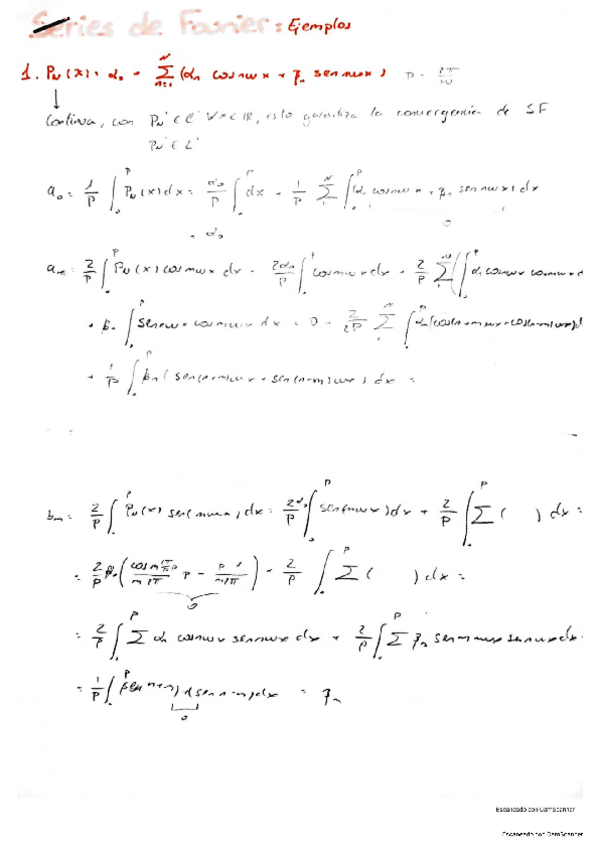 Series de Fourier: Ejemplos
1. P_N(x) = α₀ + Σ_{n=1}^{N} (αₙ cos nωx + βₙ sen nωx) P = 2π/ω
↓
Continua, con P_N' ∈ C ∀x∈ℝ, esto garantiza la convergencia de SF
P_N' ∈ L'
a₀ = 1/P ∫₀^P P_N(x) dx = α₀/P ∫₀^P dx + 1/P Σ^N ∫₀^P (αₙ cos nωx + βₙ sen nωx) dx
0
= α₀
aₘ = 2/P ∫₀^P P_N(x) cos mωx dx = 2α₀/P ∫₀^P cos mωx dx + 2/P Σ^N (∫₀^P αₙ cos nωx cos mωx d
+ βₙ ∫₀^P sen nωx cos mωx dx = 0 + 2/2P Σ^N ∫₀^P αₙ
+ 1/P ∫₀^P βₙ (sen(n+m)ωx + sen(n-m)ωx) dx =
=
bₘ = 2/P ∫₀^P P_N(x) sen(mωx) dx = 2α₀/P ∫₀^P sen(mωx) dx + 2/P ∫₀^P Σ ( ) dx =
0
= 2/P ∫₀^P Σ ( ) dx =
= 2/P ∫₀^P Σ αₙ cos nωx sen mωx dx + 2/P ∫₀^P Σ βₙ sen mωx sen nωx dx
= 1/P ∫₀^P dx = βₙ
0
Escaneado con CamScanner
Escaneado con CamScanner